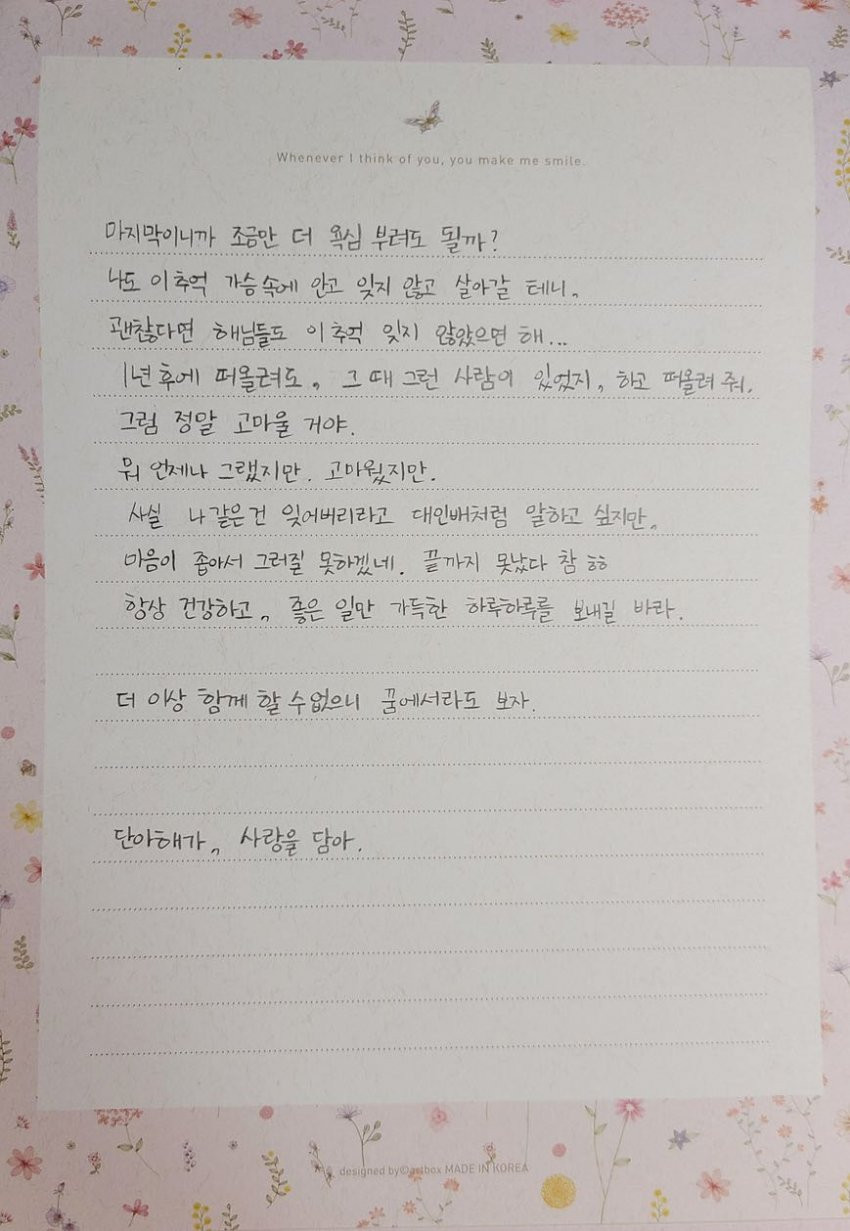 Whenever I think of you, you make me smile.
마지막이니까 조금만 더 욕심 부려도 될까?
나도 이 추억 가슴속에 안고 잊지 않고 살아갈 테니,
괜찮다면 해님들도 이 추억 잊지 않았으면 해...
1년 후에 떠올려도, 그 때 그런 사람이 있었지, 하고 떠올려 줘.
그럼 정말 고마울 거야.
뭐 언제나 그랬지만. 고마웠지만.
사실 나 같은 건 잊어버리라고 대인배처럼 말하고 싶지만,
마음이 좁아서 그러질 못하겠네. 끝까지 못났다 참 ㅎㅎ
항상 건강하고, 좋은 일만 가득한 하루하루를 보내길 바라.
더 이상 함께 할 수 없으니 꿈에서라도 보자.
단아해가, 사랑을 담아.
designed by©artbox MADE IN KOREA